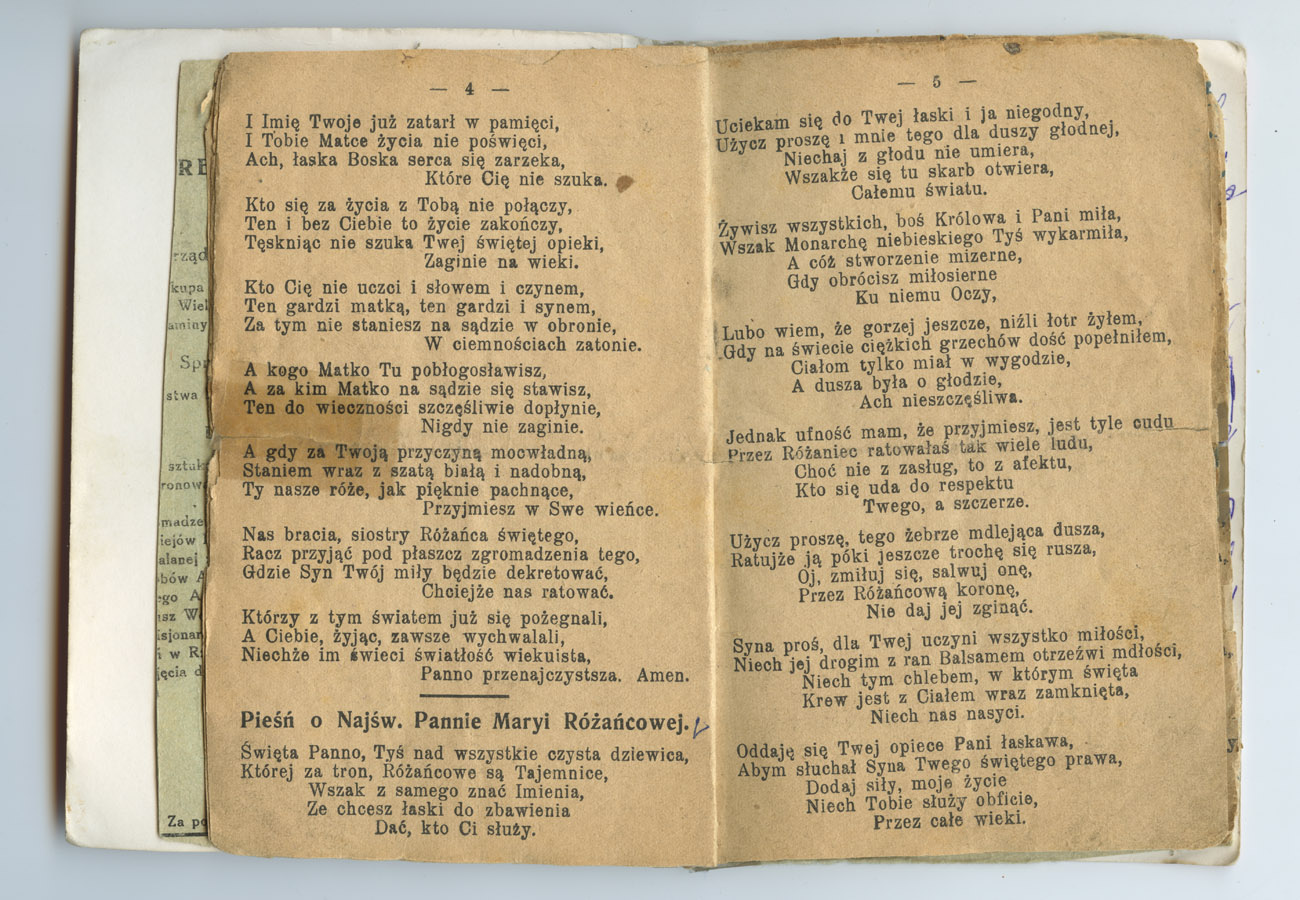 — 4 —
I Imię Twoje już zatarł w pamięci,
I Tobie Matce życia nie poświęci,
Ach, łaska Boska serca się zarzeka,
Które Cię nie szuka.
Kto się za życia z Tobą nie połączy,
Ten i bez Ciebie to życie zakończy,
Tęskniąc nie szuka Twej świętej opieki,
Zaginie na wieki.
Kto Cię nie uczci i słowem i czynem,
Ten gardzi matką, ten gardzi i synem,
Za tym nie staniesz na sądzie w obronie,
W ciemnościach zatonie.
A kogo Matko Tu pobłogosławisz,
A za kim Matko na sądzie się stawisz,
Ten do wieczności szczęśliwie dopłynie,
Nigdy nie zaginie.
A gdy za Twoją przyczyną mocwładną,
Staniem wraz z szatą białą i nadobną,
Ty nasze róże, jak pięknie pachnące,
Przyjmiesz w Swe wieńce.
Nas bracia, siostry Różańca świętego,
Racz przyjąć pod płaszcz zgromadzenia tego,
Gdzie Syn Twój miły będzie dekretować,
Chciejże nas ratować.
Którzy z tym światem już się pożegnali,
A Ciebie, żyjąc, zawsze wychwalali,
Niechże im świeci światłość wiekuista,
Panno przenajczystsza. Amen.
Pieśń o Najśw. Pannie Maryi Różańcowej.
Święta Panno, Tyś nad wszystkie czysta dziewica,
Której za tron, Różańcowe są Tajemnice,
Wszak z samego znać Imienia,
Ze chcesz łaski do zbawienia
Dać, kto Ci służy.
— 5 —
Uciekam się do Twej łaski i ja niegodny,
Użycz proszę i mnie tego dla duszy głodnej,
Niechaj z głodu nie umiera,
Wszakże się tu skarb otwiera,
Całemu światu.
Żywisz wszystkich, boś Królowa i Pani miła,
Wszak Monarchę niebieskiego Tyś wykarmiła,
A cóż stworzenie mizerne,
Gdy obrócisz miłosierne
Ku niemu Oczy,
Lubo wiem, że gorzej jeszcze, niźli łotr żyłem,
Gdy na świecie ciężkich grzechów dość popełniłem,
Ciałom tylko miał w wygodzie,
A dusza była o głodzie,
Ach nieszczęśliwa.
Jednak ufność mam, że przyjmiesz, jest tyle cudu
Przez Różaniec ratowałaś tak wiele ludu,
Choć nie z zasług, to z afektu,
Kto się uda do respektu
Twego, a szczerze.
Użycz proszę, tego żebrze mdlejąca dusza,
Ratujże ją póki jeszcze trochę się rusza,
Oj, zmiłuj się, salwuj onę,
Przez Różańcową koronę,
Nie daj jej zginąć.
Syna proś, dla Twej uczyni wszystko miłości,
Niech jej drogim z ran Balsamem otrzeźwi mdłości,
Niech tym chlebem, w którym święta
Krew jest z Ciałem wraz zamknięta,
Niech nas nasyci.
Oddaję się Twej opiece Pani łaskawa,
Abym słuchał Syna Twego świętego prawa,
Dodaj siły, moje życie
Niech Tobie służy obficie,
Przez całe wieki.